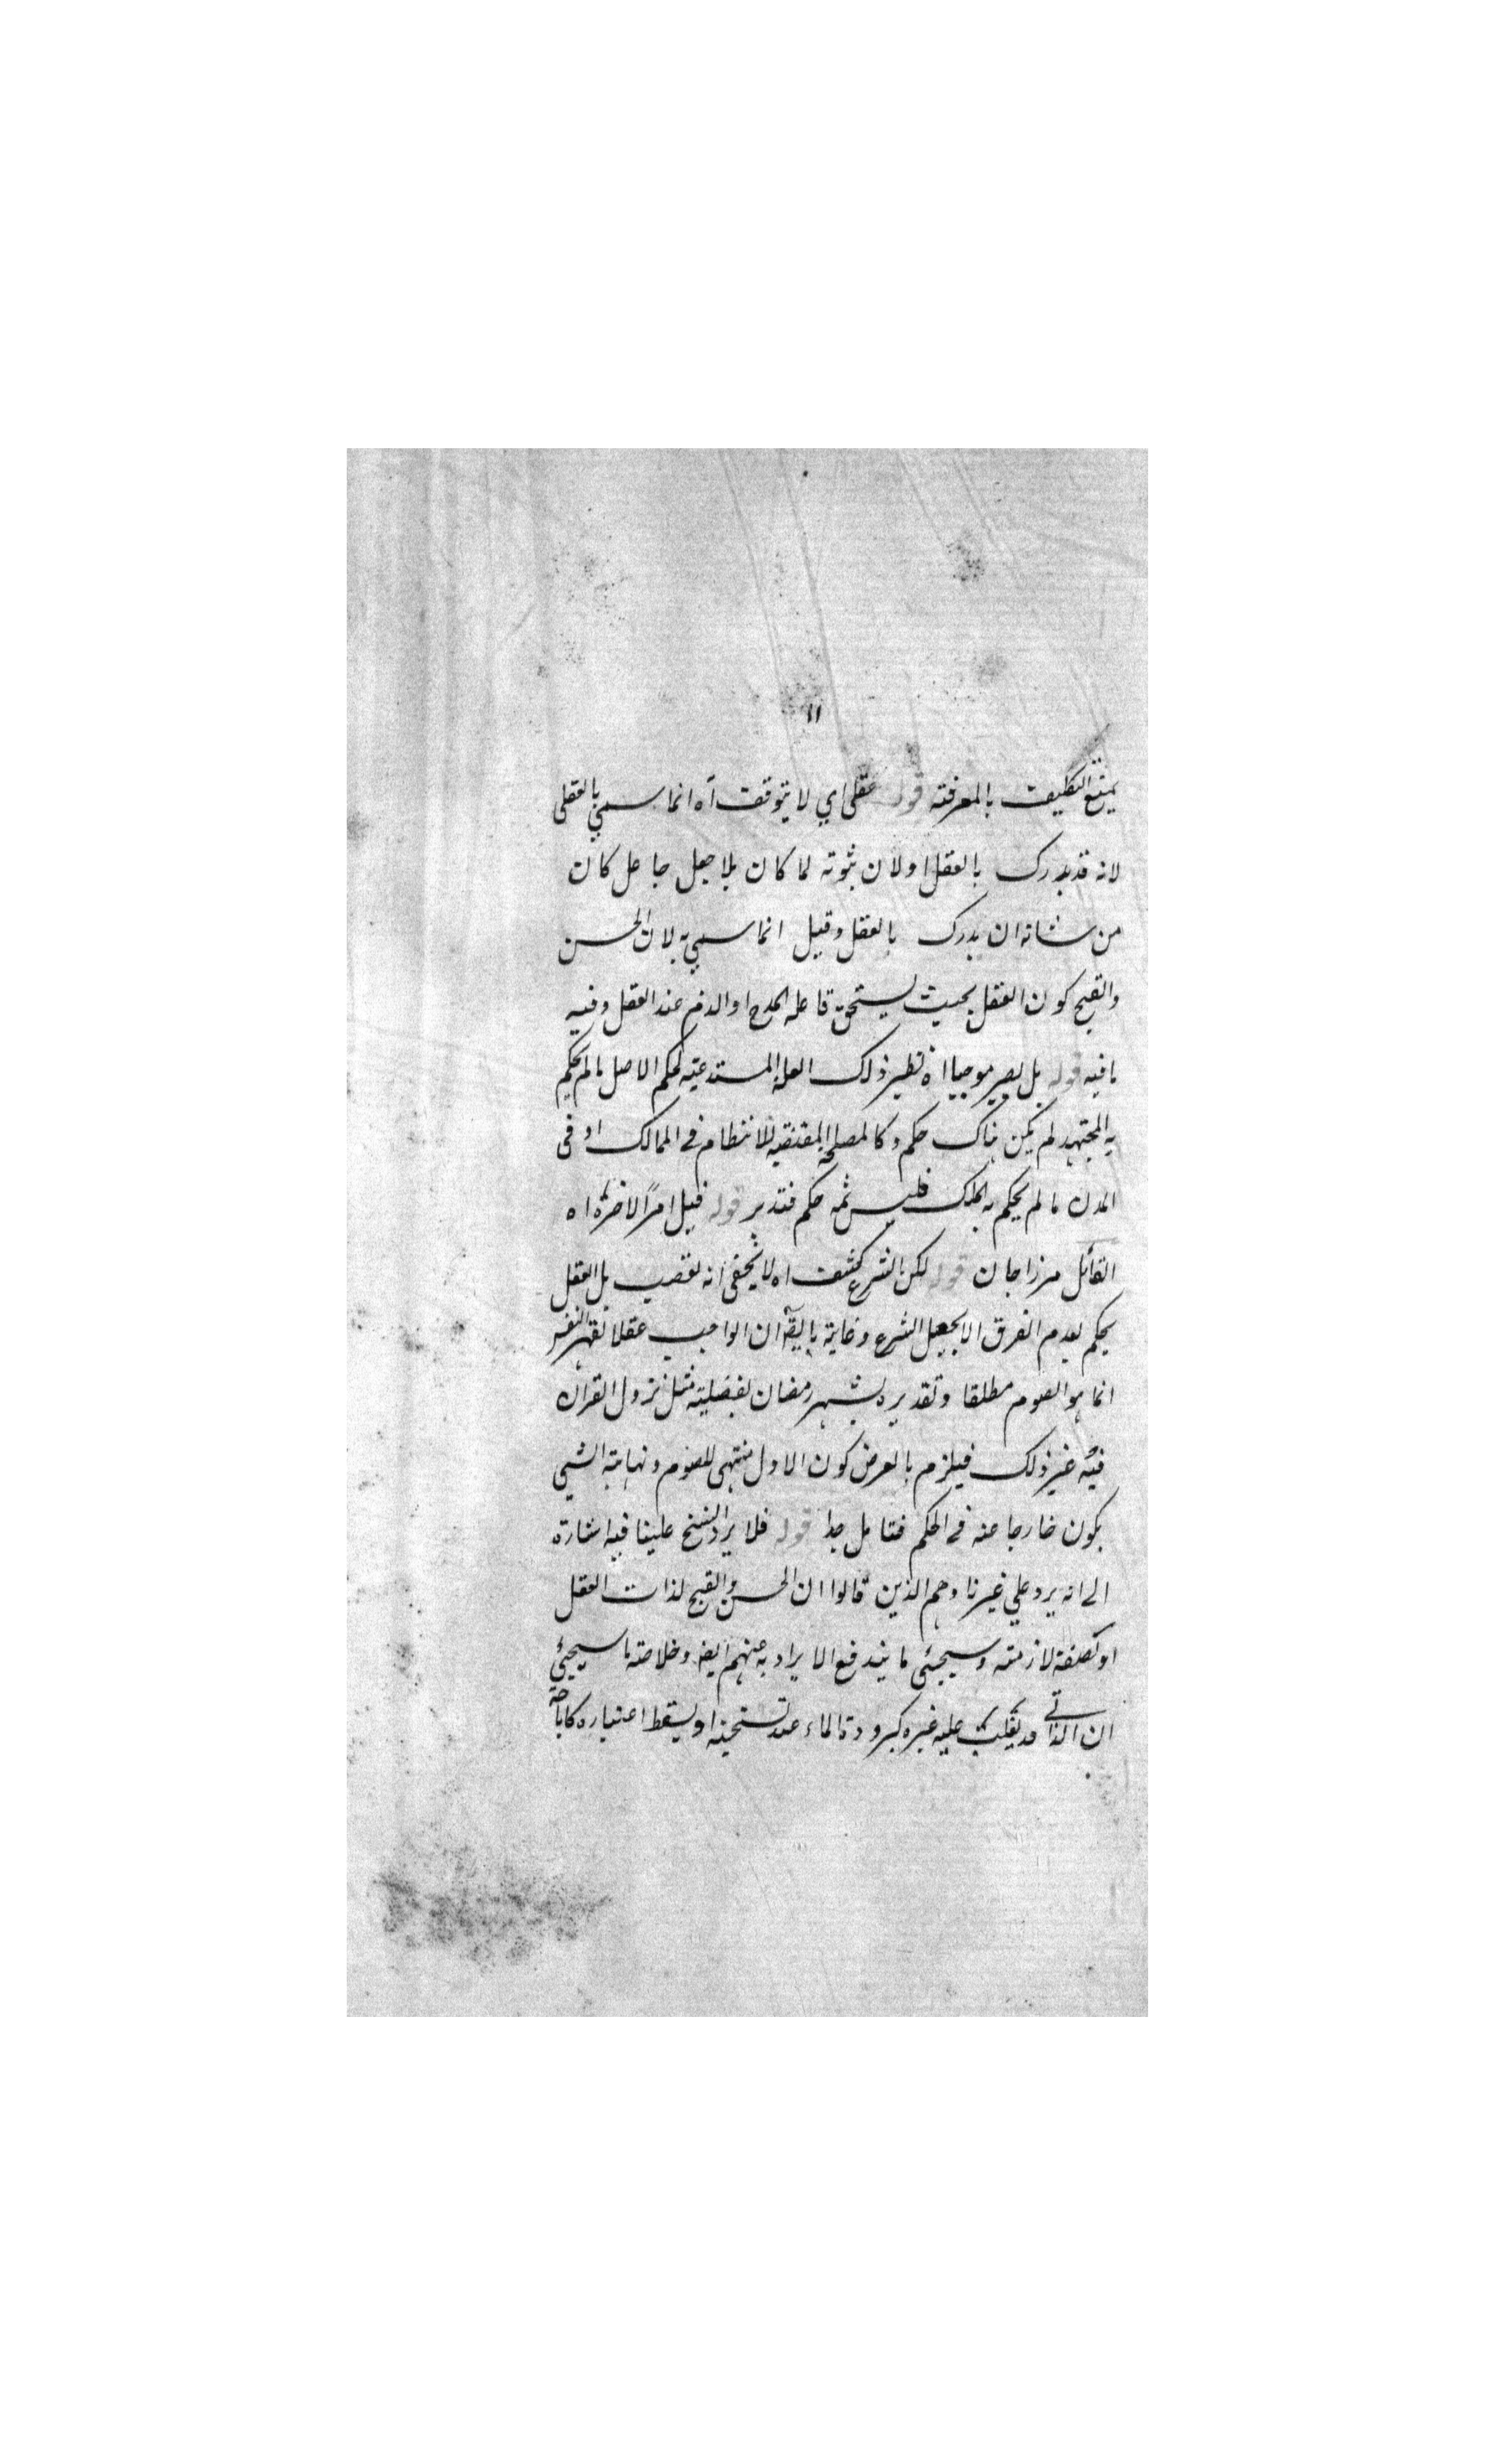 ١١
يمتنع التكليف بالمعرفة قوله عقلي اي لا يتوقف اه انما سمي بالعقلي
لانه قد يدرك بالعقل او لان ثبوته لما كان بلا جعل جاعل كان
من شانه ان يدرك بالعقل وقيل انما سمي به لان الحسن
والقبح كون الفعل بحيث يستحق فاعله المدح او الذم عند العقل وفيه
ما فيه قوله بل يصير موجبا اه نظير ذلك العلة المستدعية لحكم الاصل ما لم يحكم
به المجتهد لم يكن هناك حكم وكالمصلحة المقتضية للانتظام في الممالك او في
المدن ما لم يحكم به الملك فليس ثمه حكم فتدبر قوله قيل امرًا لاخرة اه
القائل مرزاجان قوله لكن الشرع كشف اه لا يخفى انه تعصب بل العقل
يحكم بعدم الفرق الا بجعل الشرع وغاية ما يق ان الواجب عقلا لقهر النفس
انما هو الصوم مطلقا وتقديره بشهر رمضان لفضيلته مثل نزول القرآن
فيه غير ذلك فيلزم بالعرض كون الاول منتهى للصوم ونهاية الشي
يكون خارجا عنه في الحكم فتامل جدا قوله فلا يرد النسخ علينا فيه اشارة
الى انه يرد علي غيرنا وهم الذين قالوا ان الحسن والقبح لذات الفعل
او لصفة لازمته وسيجئي ما يندفع الايراد به عنهم ايضا وخلاصة ما سيجيئ
ان الذاتي قد يغلب عليه غيره كبرودة الماء عند تسخينه او يسقط اعتباره كاباحة